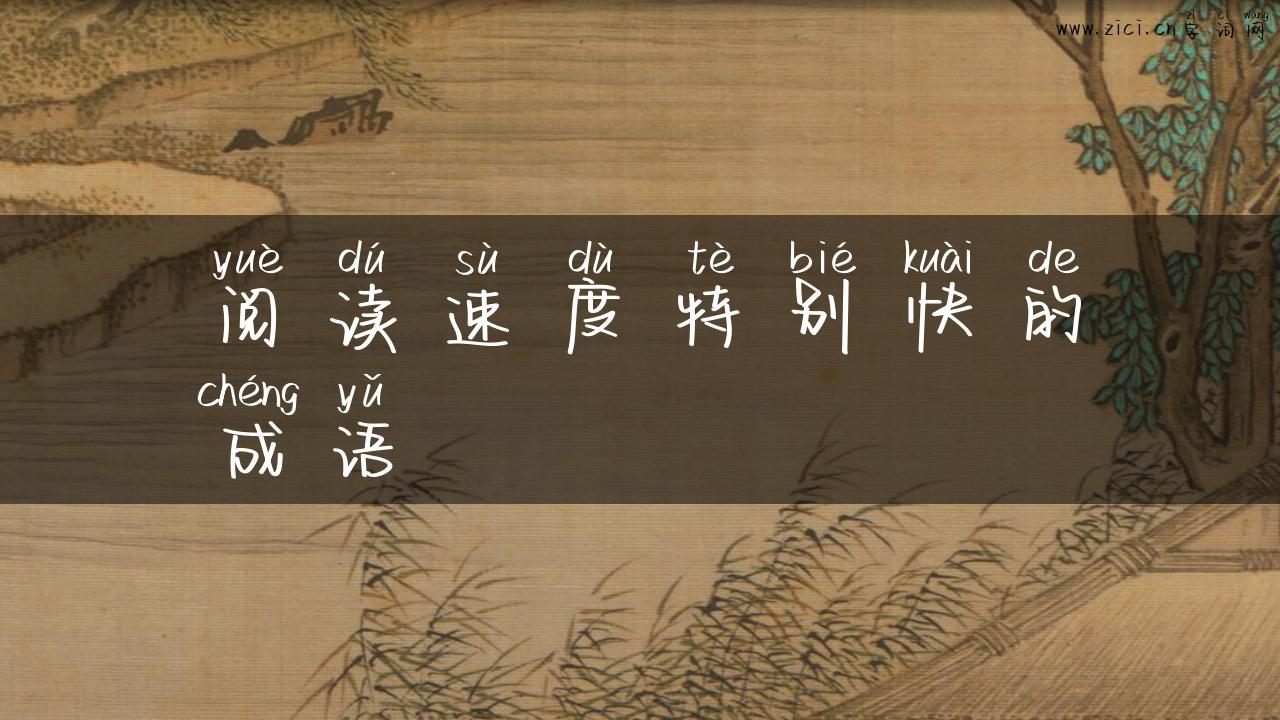 zì cí wǎng
www.zici.cn字词网
yuè dú sù dù tè bié kuài de
阅读速度特别快的
chéng yǔ
成语